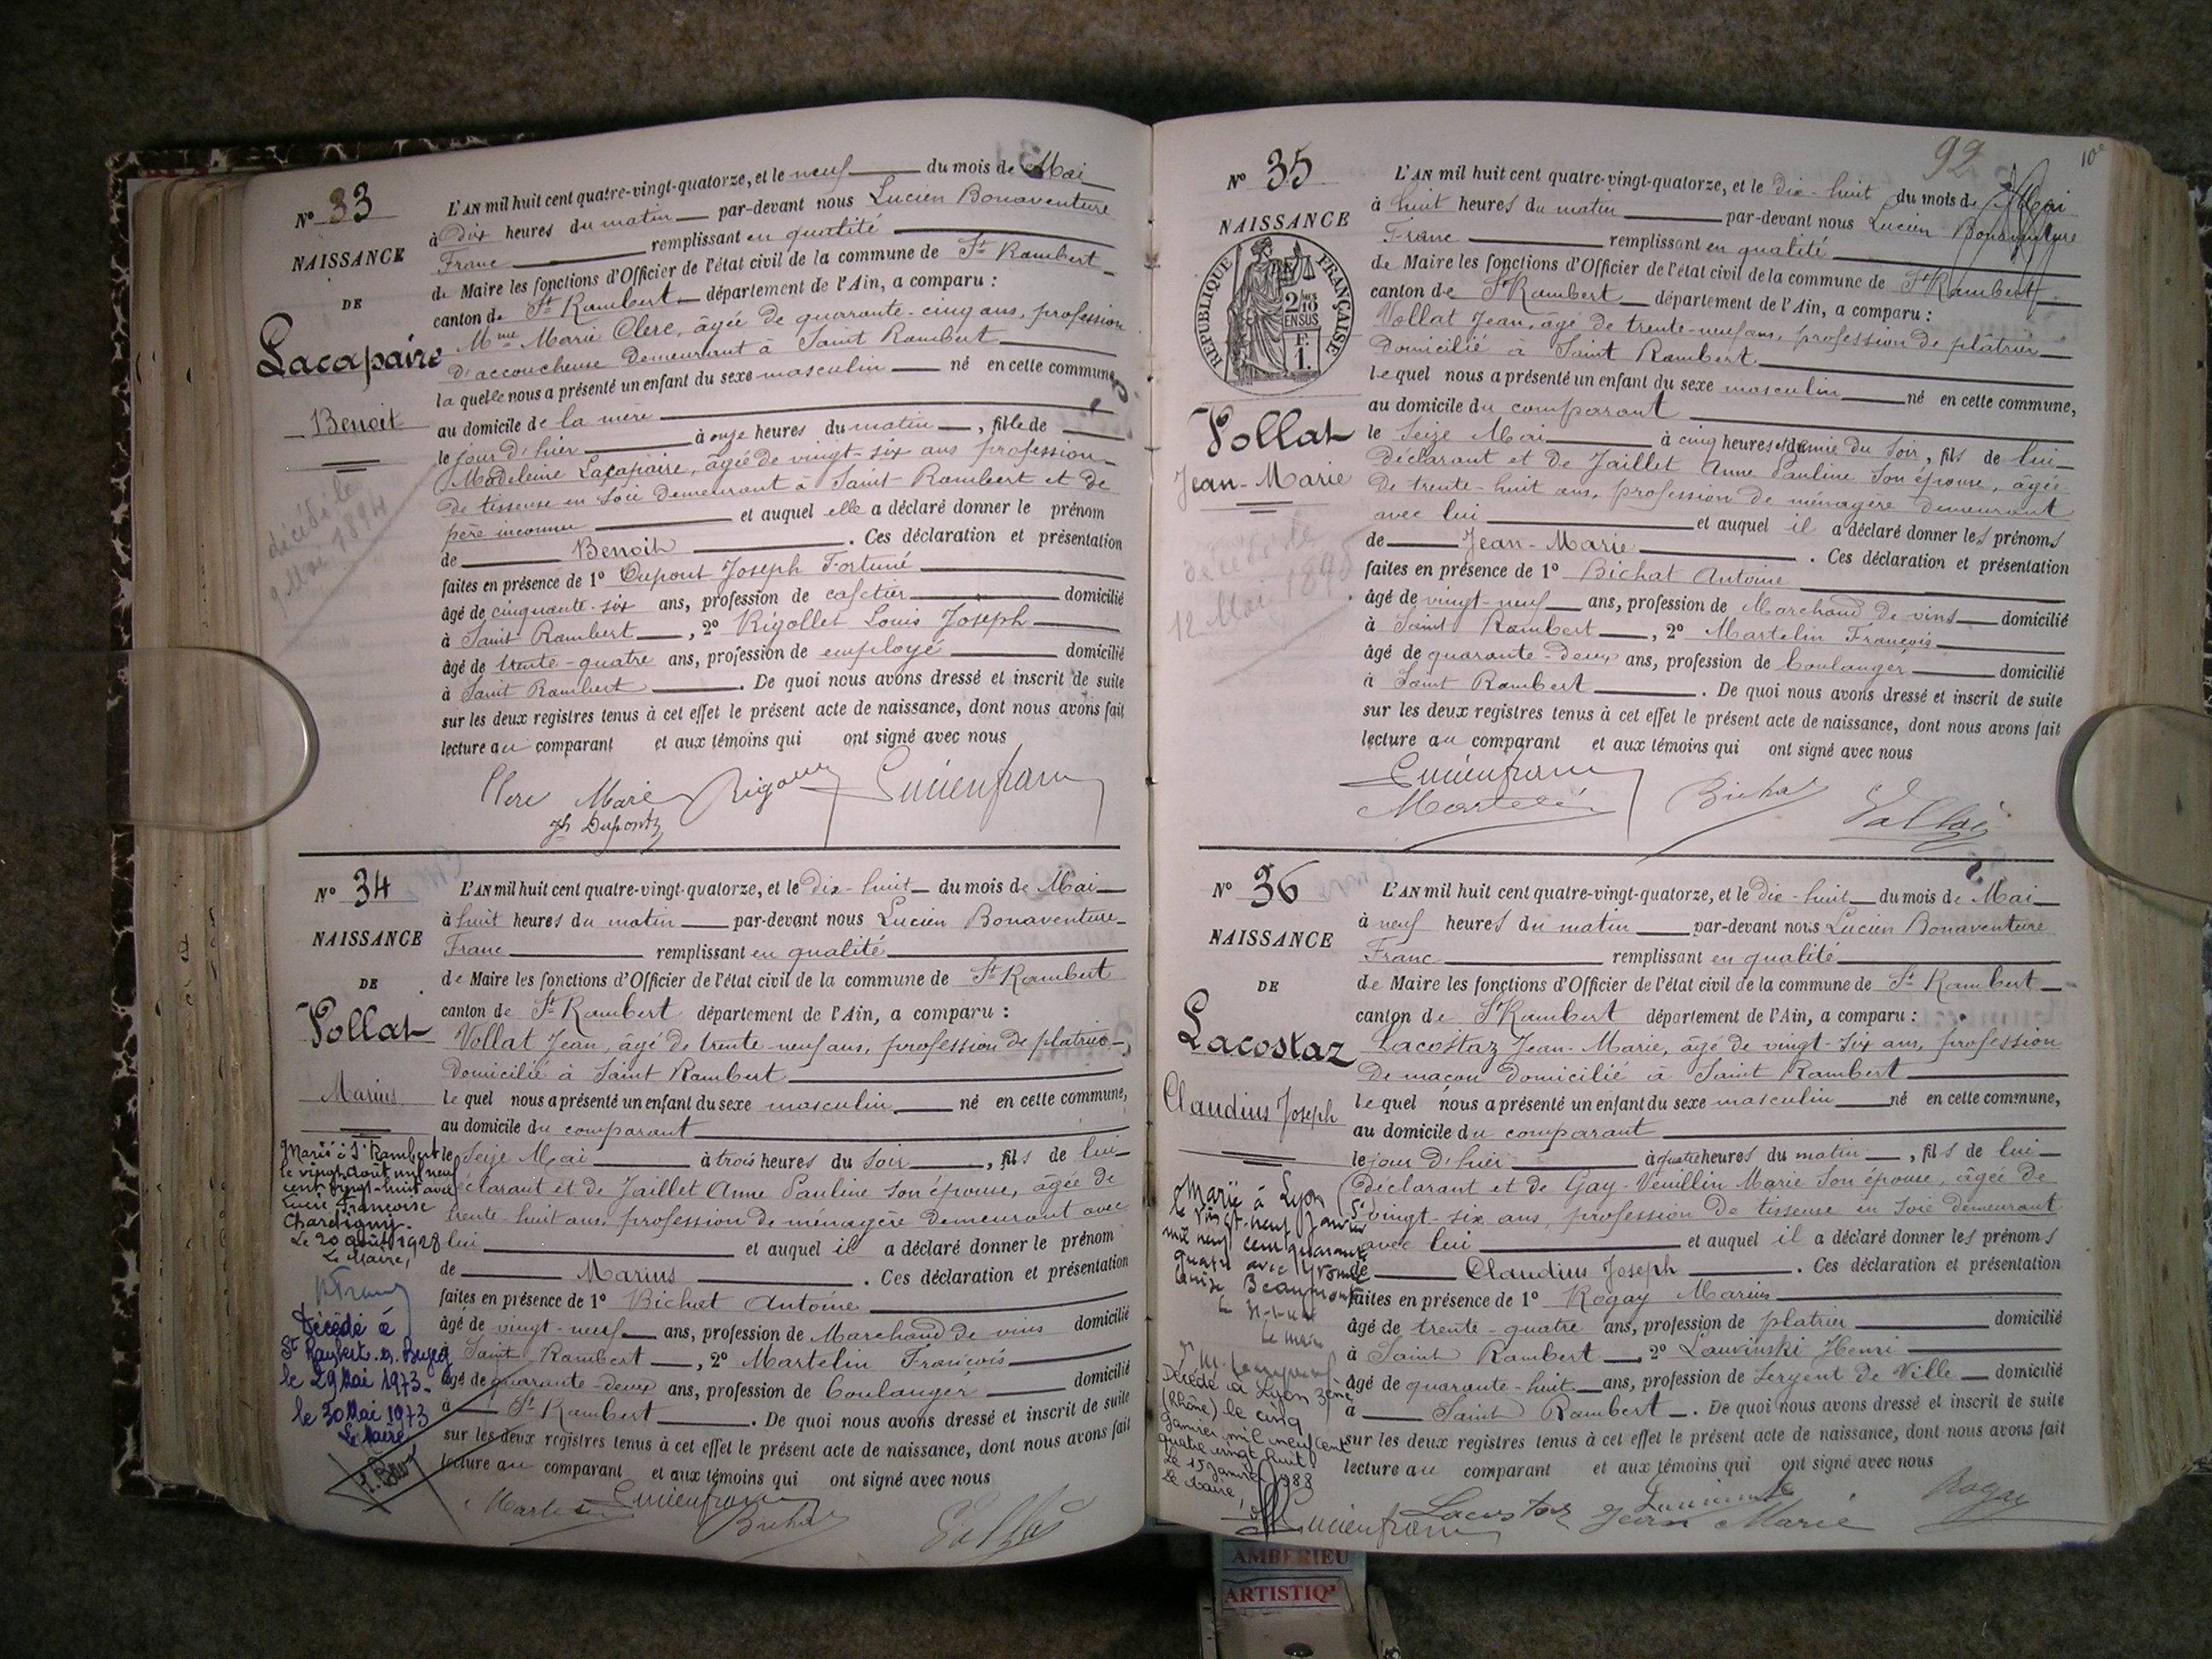 N° 33
NAISSANCE
DE
Lacapaire
Benoit
décédé le
9 Mai 1894
L'AN mil huit cent quatre-vingt-quatorze, et le neuf du mois de Mai
à Dix heures du matin par-devant nous Lucien Bonaventure
Franc remplissant en qualité
de Maire les fonctions d'Officier de l'état civil de la commune de St Rambert
canton de St Rambert département de l'Ain, a comparu :
Mme Marie Clerc, âgée de quarante-cinq ans, profession
d'accoucheuse demeurant à Saint Rambert
laquelle nous a présenté un enfant du sexe masculin né en cette commune,
au domicile de la mère
le jour d'hier à onze heures du matin, fils de
Madeleine Lacapaire, âgée de vingt-six ans profession
de tisseuse en soie demeurant à Saint-Rambert et de
père inconnu et auquel elle a déclaré donner le prénom
de Benoit. Ces déclaration et présentation
faites en présence de 1° Dupont Joseph Fortuné
âgé de cinquante-six ans, profession de cafetier domicilié
à Saint Rambert, 2° Rigollet Louis Joseph
âgé de trente-quatre ans, profession de employé domicilié
à Saint Rambert. De quoi nous avons dressé et inscrit de suite
sur les deux registres tenus à cet effet le présent acte de naissance, dont nous avons fait
lecture au comparant et aux témoins qui ont signé avec nous
Clerc Marie Lucien franc
Jh Dupont
N° 34
NAISSANCE
DE
Vollat
Marius
Marié à St Rambert le
le vingt août mil neuf
cent vingt-huit avec
Lucie Françoise
Chardigny.
Le 20 août 1928
Le Maire,
Décédé à
St Rambert-en-Bugey
le 29 Mai 1973.
le 30 Mai 1973
Le Maire
L'AN mil huit cent quatre-vingt-quatorze, et le dix-huit du mois de Mai
à huit heures du matin par-devant nous Lucien Bonaventure
Franc remplissant en qualité
de Maire les fonctions d'Officier de l'état civil de la commune de St Rambert
canton de St Rambert département de l'Ain, a comparu :
Vollat Jean, âgé de trente-neuf ans, profession de platrier,
domicilié à Saint Rambert
lequel nous a présenté un enfant du sexe masculin né en cette commune,
au domicile du comparant
Seize Mai à trois heures du soir, fils de lui
déclarant et de Jaillet Anne Pauline son épouse, âgée de
trente-huit ans, profession de ménagère demeurant avec
lui et auquel il a déclaré donner le prénom
de Marius. Ces déclaration et présentation
faites en présence de 1° Bichat Antoine
âgé de vingt-neuf ans, profession de Marchand de vins domicilié
à Saint Rambert, 2° Martelin François
âgé de quarante-deux ans, profession de boulanger domicilié
à St Rambert. De quoi nous avons dressé et inscrit de suite
sur les deux registres tenus à cet effet le présent acte de naissance, dont nous avons fait
lecture au comparant et aux témoins qui ont signé avec nous
Lucien franc
Bichat
92
10e
N° 35
NAISSANCE
RÉPUBLIQUE FRANÇAISE
2/10 EN SUS
F. 1.
Vollat
Jean-Marie
décédé le
12 Mai 1895
L'AN mil huit cent quatre-vingt-quatorze, et le dix-huit du mois de Mai
à huit heures du matin par-devant nous Lucien Bonaventure
Franc remplissant en qualité
de Maire les fonctions d'Officier de l'état civil de la commune de St Rambert
canton de St Rambert département de l'Ain, a comparu :
Vollat Jean, âgé de trente-neuf ans, profession de plâtrier
domicilié à Saint Rambert
lequel nous a présenté un enfant du sexe masculin né en cette commune,
au domicile du comparant
le Seize Mai à cinq heures et demie du soir, fils de lui
déclarant et de Jaillet Anne Pauline son épouse, âgée
de trente-huit ans, profession de ménagère demeurant
avec lui et auquel il a déclaré donner les prénoms
de Jean-Marie. Ces déclaration et présentation
faites en présence de 1° Bichat Antoine
âgé de vingt-neuf ans, profession de Marchand de vins domicilié
à Saint Rambert, 2° Martelin François
âgé de quarante-deux ans, profession de boulanger domicilié
à Saint Rambert. De quoi nous avons dressé et inscrit de suite
sur les deux registres tenus à cet effet le présent acte de naissance, dont nous avons fait
lecture au comparant et aux témoins qui ont signé avec nous
Lucien franc
Bichat
N° 36
NAISSANCE
DE
Lacostaz
Claudius Joseph
Marié à Lyon 5e
le vingt-neuf janvier
mil neuf cent quarante
quatre avec Yvonne
Louise Beaumont
Le Maire
Décédé à Lyon 3ème
(Rhône) le cinq
janvier mil neuf cent
quatre vingt huit.
Le 15 janvier 1988
Le Maire,
L'AN mil huit cent quatre-vingt-quatorze, et le dix-huit du mois de Mai
à neuf heures du matin par-devant nous Lucien Bonaventure
Franc remplissant en qualité
de Maire les fonctions d'Officier de l'état civil de la commune de St Rambert
canton de St Rambert département de l'Ain, a comparu :
Lacostaz Jean-Marie, âgé de vingt-six ans, profession
de maçon domicilié à Saint Rambert
lequel nous a présenté un enfant du sexe masculin né en cette commune,
au domicile du comparant
le jour d'hier à quatre heures du matin, fils de lui
déclarant et de Gay-Veuillin Marie son épouse, âgée de
vingt-six ans, profession de tisseuse en soie demeurant
avec lui et auquel il a déclaré donner les prénoms
de Claudius Joseph. Ces déclaration et présentation
faites en présence de 1° Rogay Marius
âgé de trente-quatre ans, profession de platrier domicilié
à Saint Rambert, 2° Lauvinski Henri
âgé de quarante-huit ans, profession de Sergent de Ville domicilié
à Saint Rambert. De quoi nous avons dressé et inscrit de suite
sur les deux registres tenus à cet effet le présent acte de naissance, dont nous avons fait
lecture au comparant et aux témoins qui ont signé avec nous
Lucien franc Lacostaz Jean Marie Rogay
AMBERIEU
ARTISTIQ